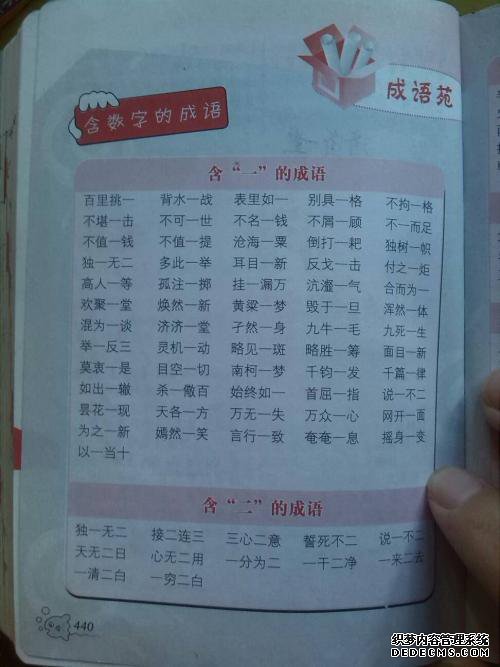 成语苑
含数字的成语
含“一”的成语
百里挑一 背水一战 表里如一 别具一格 不拘一格
不堪一击 不可一世 不名一钱 不屑一顾 不一而足
不值一钱 不值一提 沧海一粟 倒打一耙 独树一帜
独一无二 多此一举 耳目一新 反戈一击 付之一炬
高人一等 孤注一掷 挂一漏万 沆瀣一气 合而为一
欢聚一堂 焕然一新 黄粱一梦 毁于一旦 浑然一体
混为一谈 济济一堂 孑然一身 九牛一毛 九死一生
举一反三 灵机一动 略见一斑 略胜一筹 面目一新
莫衷一是 目空一切 南柯一梦 千钧一发 千篇一律
如出一辙 杀一儆百 始终如一 首屈一指 说一不二
昙花一现 天各一方 万无一失 万众一心 网开一面
为之一新 嫣然一笑 言行一致 奄奄一息 摇身一变
以一当十
含“二”的成语
独一无二 接二连三 三心二意 誓死不二 说一不二
天无二日 心无二用 一分为二 一干二净 一来二去
一清二白 一穷二白
440
织梦内容管理系统
DEDECMS.COM